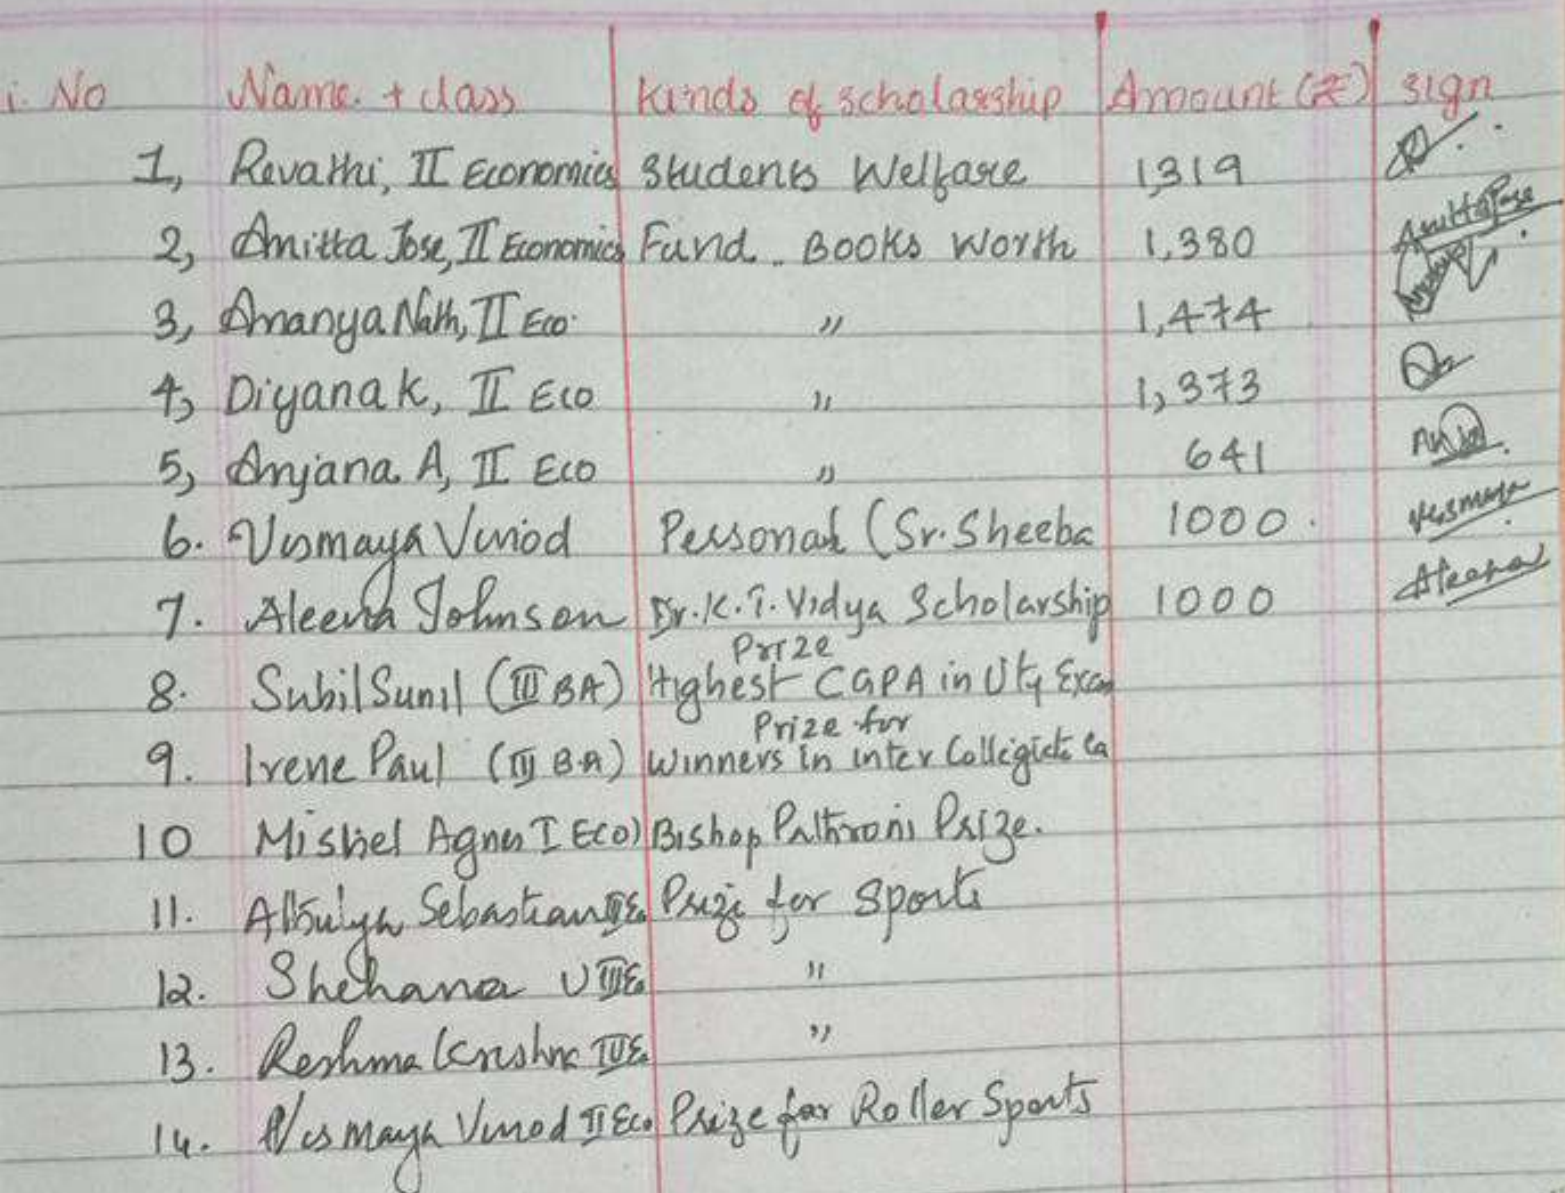 i. No Name. + class Kinds of scholarship Amount (₹) sign
1, Revathi, II Economics Students Welfare 1319
2, Anitta Jose, II Economics Fund.. Books Worth 1,380 Anitta Jose
3, Ananya Nath, II Eco. " 1,474
4, Diyana K, II Eco " 1,373
5, Anjana. A, II Eco " 641
6. Vismaya Vinod Personal (Sr. Sheeba 1000. Vismaya
7. Aleena Johnson Dr. K. T. Vidya Scholarship 1000 Aleena
Prize
8. Subil Sunil (III BA) Highest CGPA in Uty Exam
Prize for
9. Irene Paul (III B.A) Winners in inter Collegiate Ca
10 Mishel Agnes I Eco) Bishop Prize.
11. Sebastian Prize for Sports
12. Shehana U "
13. Reshma Krishna "
14. Vismaya Vinod II Eco Prize for Roller Sports